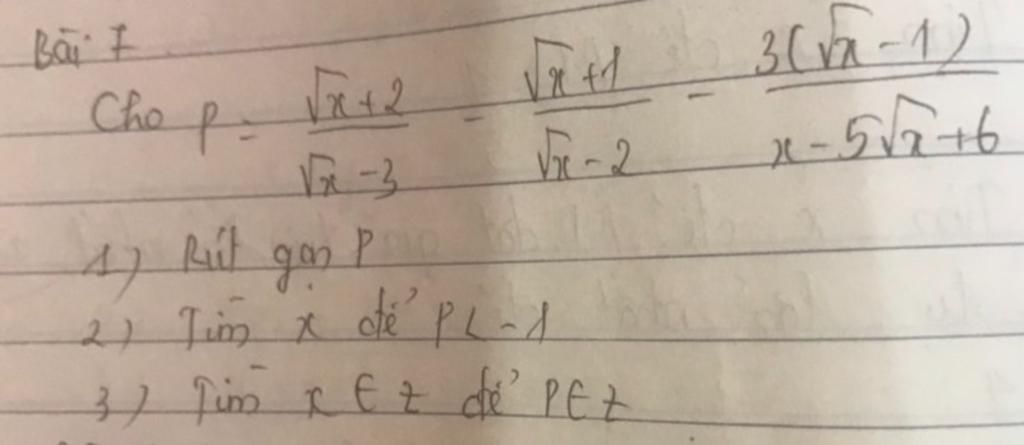 Bài 7
Cho P = (√x+2)/(√x-3) - (√x+1)/(√x-2) - 3(√x-1)/(x-5√x+6)
1) Rút gọn P
2) Tìm x để P<-1
3) Tìm x ∈ Z để P∈Z